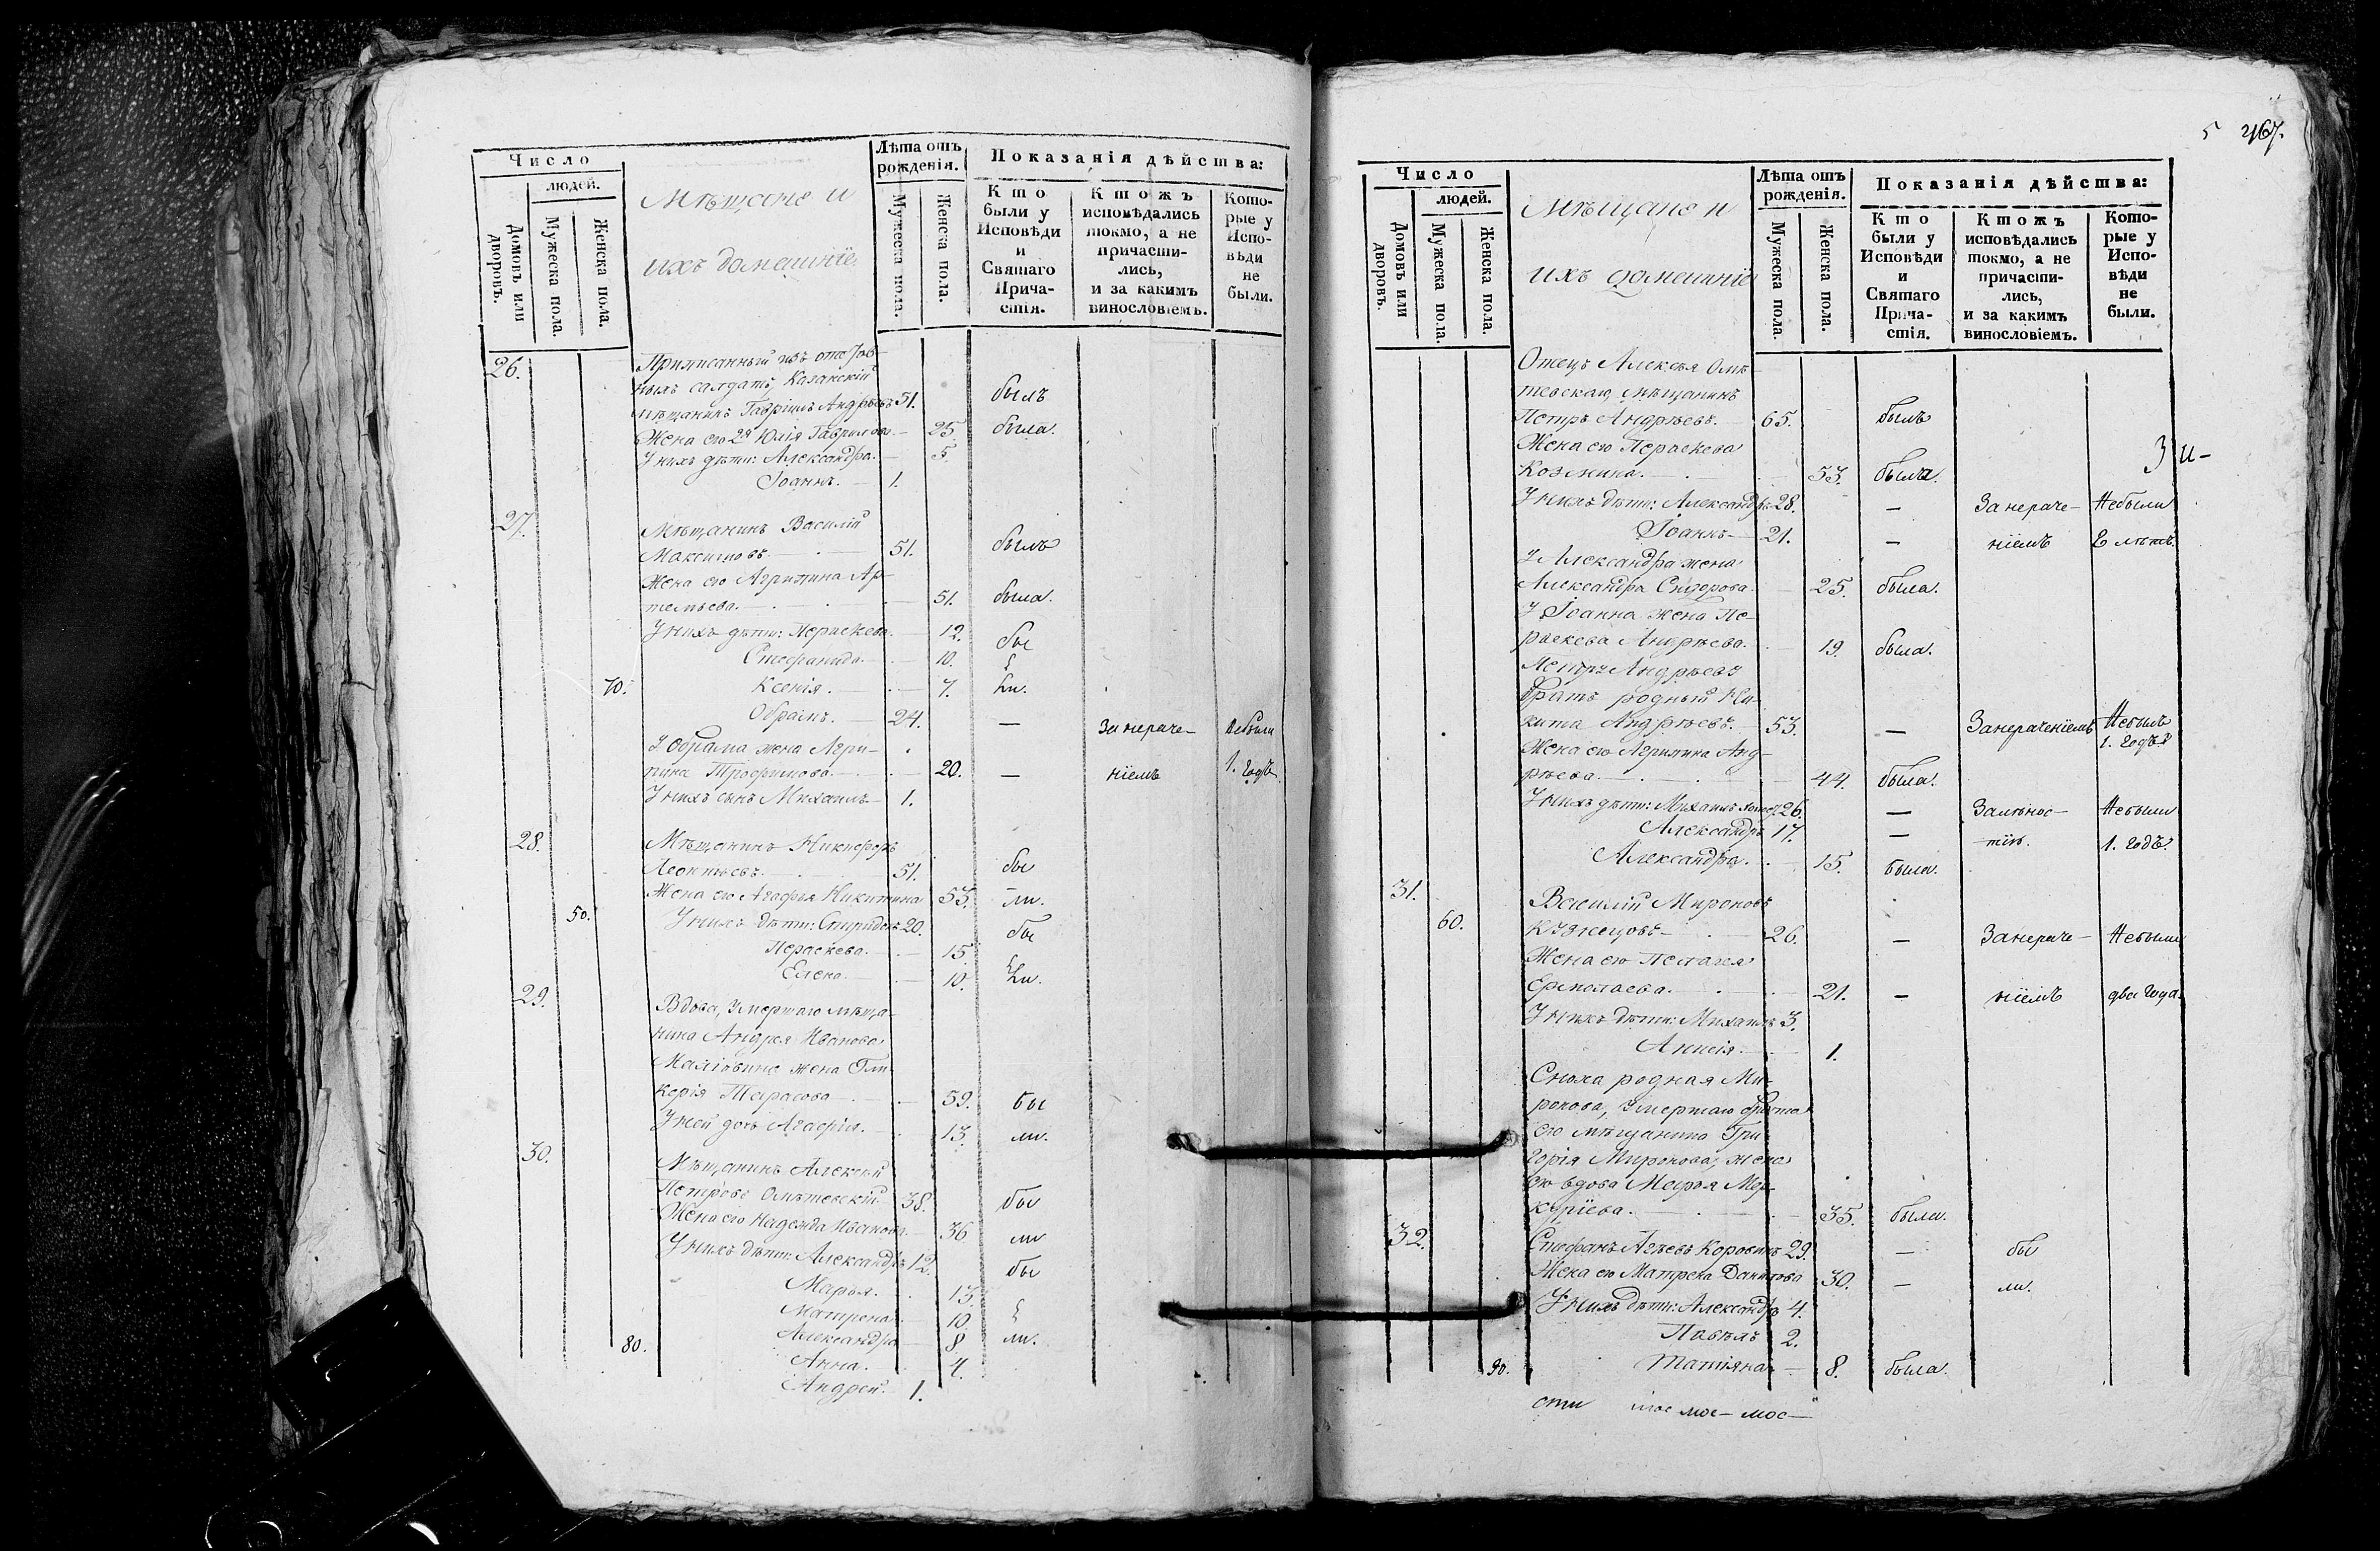 Число
людей.
Домовъ или дворовъ.
Мужеска пола.
Женска пола.
Мѣщане и
ихъ домашніе
Лѣта отъ рожденія.
Мужеска пола.
Женска пола.
Показанія дѣйства:
Кто были у Исповѣди и Святаго Прича-стія.
Ктожъ исповѣдались токмо, а не причасти-лись, и за какимъ винословіемъ.
Кото-рые у Испо-вѣди не были.
26. Приписанный изъ отстав-
ныхъ салдатъ, Казанскій
мѣщанинъ Гавріилъ Андрѣевъ 51. былъ
Жена его 2я Юлія Гаврилова 25 была.
У нихъ дѣти: Александра. 5.
Іоаннъ. 1.
27. Мѣщанинъ Василій
Максимовъ. 51. былъ
Жена его Агрипина Ар-
темьева. 51. была.
У нихъ дѣти: Пераскева. 12. бы
Стефанида. 10.
70. Ксенія. 7. ли.
24. — За нераче- Небыли
пина Трофимова. 20. — ніемъ 1. годъ
У нихъ сынъ Михаилъ 1.
28. Мѣщанинъ Никифоръ
Леонтьевъ. 51. бы
Жена его Агафья Никитина 53. ли.
50. У нихъ дѣти: Спиридонъ 20. бы
Пераскева. 15.
Елена. 10. ли.
29. Вдова, умершаго мѣща-
нина Андрея Иванова
жена Гли-
керія Тарасова 59. бы
У ней дочь Агафія. 13. ли.
30. Мѣщанинъ Алексѣй
Петровъ Омѣтевскій 38. бы
Жена его Надежда Иванова 36 ли
У нихъ дѣти: Александръ 12. бы
Марья. 13.
Матрена 10
80. Александра 8 ли.
Анна. 4.
Андрей. 1.
5 467.
Число
людей.
Домовъ или дворовъ.
Мужеска пола.
Женска пола.
Мѣщане и
ихъ домашніе
Лѣта отъ рожденія.
Мужеска пола.
Женска пола.
Показанія дѣйства:
Кто были у Исповѣди и Святаго Прича-стія.
Ктожъ исповѣдались токмо, а не причасти-лись, и за какимъ винословіемъ.
Кото-рые у Испо-вѣди не были.
Отецъ Алексѣя Омѣ-
тевскаго, мѣщанинъ
Петръ Андрѣевъ. 65. былъ
Жена его Пераскева
Козмина. 53. была.
У нихъ дѣти: Александръ 28. — За нераче- Небыли
Іоаннъ 21. — ніемъ 2 лѣтъ.
У Александра жена
Александра Сидорова. 25. была.
У Іоанна жена Пе-
раскева Андрѣева. 19. была.
Петръ Андрѣевъ
братъ родный Ни-
кита Андрѣевъ. 53. — За нераченіемъ Небылъ
1. годъ
Жена его Агрипина Анд-
рѣева. 44. была.
У нихъ дѣти: Михаилъ 26. — За лѣнос- Небыли
Александръ 17. — тію. 1. годъ
Александра. 15. была.
31. Василій Мироновъ
60. Кузнецовъ 26. — За нераче- Небыли
Жена его Пелагея
Ермолаева. 21. — ніемъ два года.
У нихъ дѣти: Михаилъ 3.
Анисія 1.
Сноха родная Ми-
ронова, умершаго брата
его мѣщанина Гри-
горія Миронова, жена
его вдова Марья Мер-
куріева. 35. была.
32. Стефанъ Агѣевъ Коровинъ 29. — бы
Жена его Матрена Данилова 30. — ли.
У нихъ дѣти: Александръ 4.
Павелъ 2.
90. Татіяна 8. была.